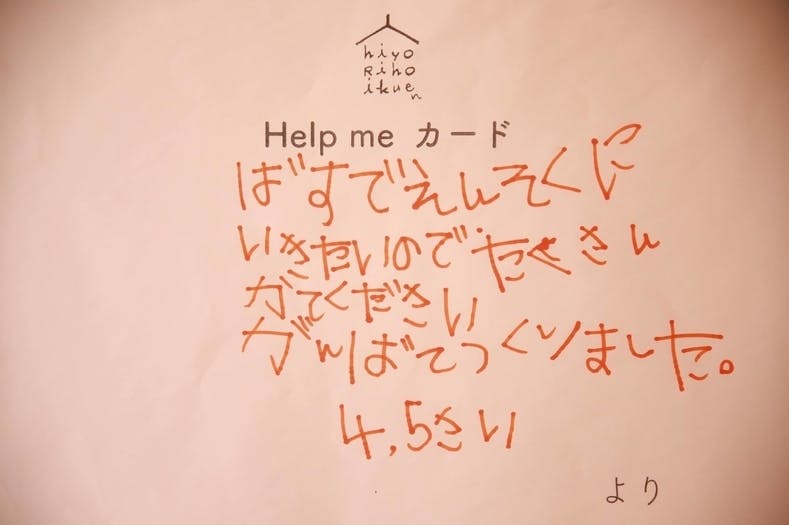 hiyo
Riho
ikuen
Help me カード
ばすでえんそくに
いきたいので、たくさん
がてください
がんばてつくりました。
4,5さい
より